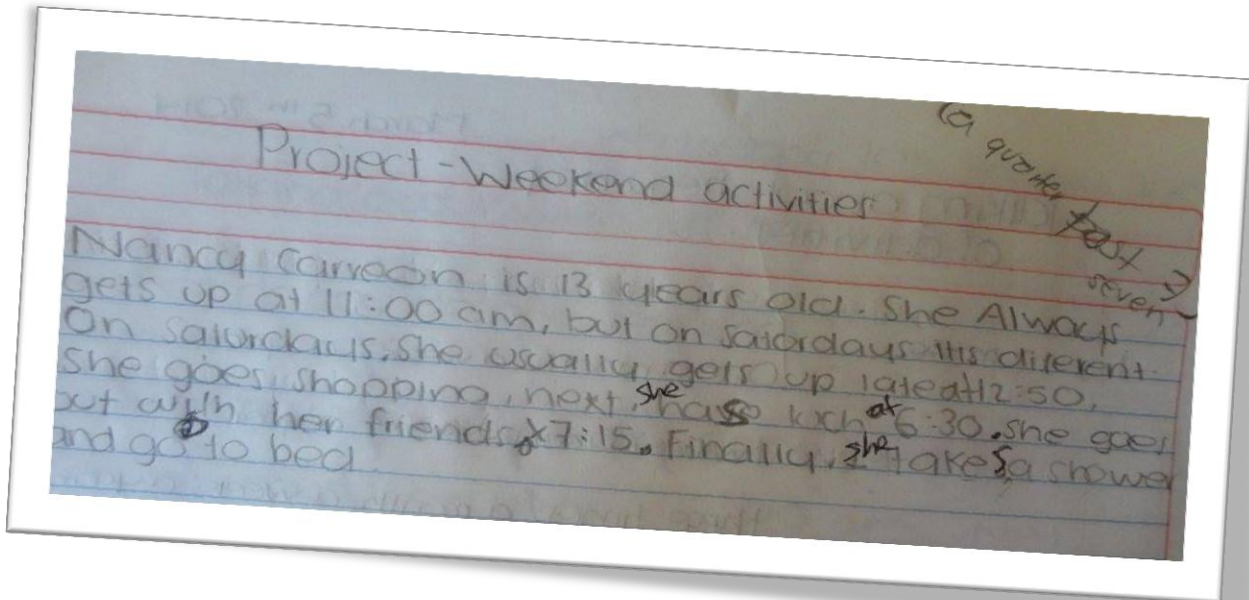 (a quarter past seven)
Project - Weekend activities
Nancy Carreon is 13 years old. She Always
gets up at 11:00 am, but on saturdays its diferent.
On saturdays, she usually gets up late at 12:50,
She goes shopping, next, she has at 6:30. she goes
out with her friends 7:15. Finally, she takes a shower
and go to bed.